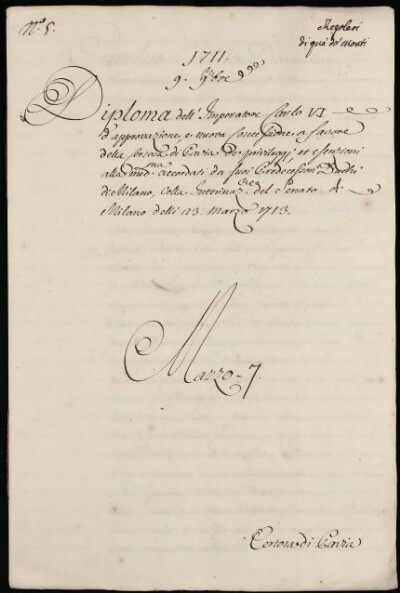 N.ro 5.
Regolari
di quà da' Monti
1711.
9. 9bre
Diploma dell' Imperatore Carlo VI
d'approvazione, e nuova concessione a favore
della Certosa di Pavia de' privileggj, et esenzioni
alla med.ma accordati da suoi Predecessori Duchi
di Milano, colla Interinaz.ne del Senato di
Milano delli 23. marzo 1713.
Mazzo 7.
Certosa di Pavia